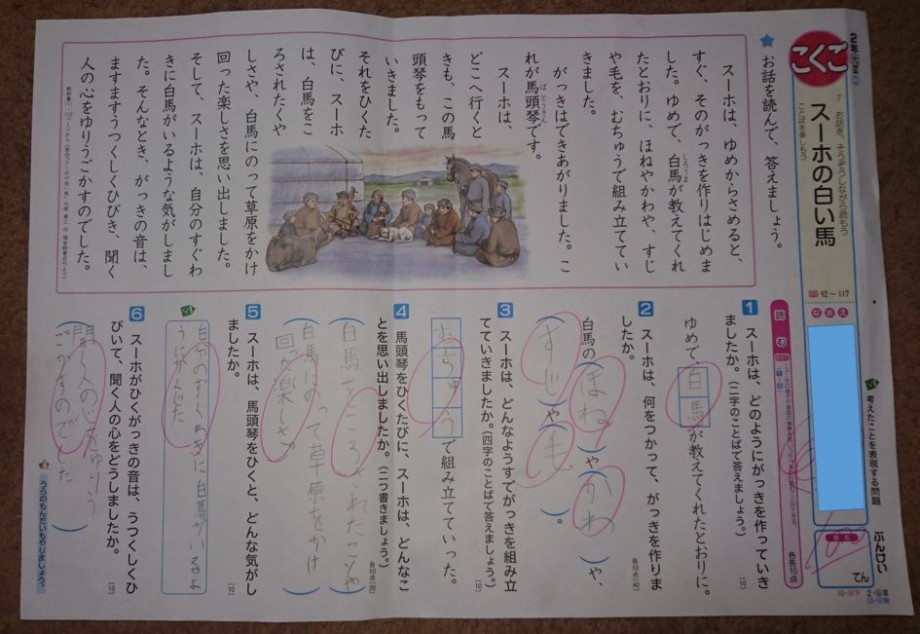 こくご
スーホの白い馬
92～117
なまえ
考えたことを表現する問題
ぶんけい
てん
お話を読んで、答えましょう。
スーホは、ゆめからさめると、
すぐ、そのがっきを作りはじめま
した。ゆめで、白馬が教えてくれ
たとおりに、ほねやかわや、すじ
や毛を、むちゅうで組み立ててい
きました。
がっきはできあがりました。こ
れが馬頭琴です。
スーホは、
どこへ行くと
きも、この馬
頭琴をもって
いきました。
それをひくた
びに、スーホ
は、白馬をこ
ろされたくや
しさや、白馬にのって草原をかけ
回った楽しさを思い出しました。
そして、スーホは、自分のすぐわ
きに白馬がいるような気がしまし
た。そんなとき、がっきの音は、
ますますうつくしくひびき、聞く
人の心をゆりうごかすのでした。
読む
各10点
1 スーホは、どのようにがっきを作っていき
ましたか。(二字のことばで答えましょう。)
ゆめで、白馬が教えてくれたとおりに。
2 スーホは、何をつかって、がっきを作りま
したか。
白馬の(ほね)や(かわ)や、
(すじ)や(毛)。
3 スーホは、どんなようすでがっきを組み立
てていきましたか。(四字のことばで答えましょう。)
むちゅうで組み立てていった。
4 馬頭琴をひくたびに、スーホは、どんなこ
とを思い出しましたか。(二つ書きましょう。)
(白馬をころされたくやしさ)
(白馬にのって草原をかけ
回った楽しさ)
5 スーホは、馬頭琴をひくと、どんな気がし
ましたか。
自分のすぐわきに白馬がいるよ
うな気がした
6 スーホがひくがっきの音は、うつくしくひ
びいて、聞く人の心をどうしましたか。
(聞く人の心をゆりう
ごかすのでした)
うらのもんだいもやりましょう。